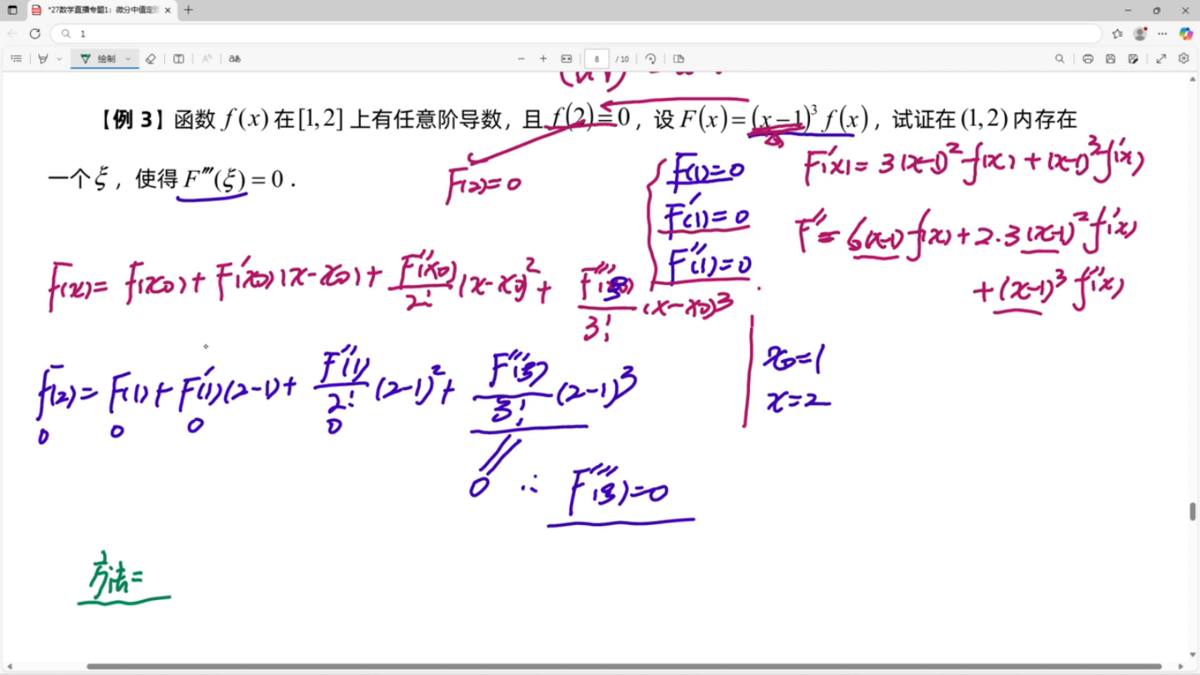 *27数学直播专题1：微分中值定
1
绘制
8 / 10
【例 3】函数 f(x) 在[1,2] 上有任意阶导数，且 f(2)=0，设 F(x)=(x−1)³ f(x)，试证在 (1,2) 内存在
一个ξ，使得 F‴(ξ)=0．
F(2)=0
F(1)=0
F′(1)=0
F″(1)=0
F′(x)=3(x-1)²f(x)+(x-1)³f′(x)
F″=6(x-1)f(x)+2·3(x-1)²f′(x)
+(x-1)³f″(x)
F(x)=f(x₀)+F′(x₀)(x-x₀)+F″(x₀)/2!(x-x₀)²+F‴(ξ)/3!(x-x₀)³
x₀=1
x=2
F(2)=F(1)+F′(1)(2-1)+F″(1)/2!(2-1)²+F‴(ξ)/3!(2-1)³
0 0 0 0
0 ∴ F‴(ξ)=0
方法=